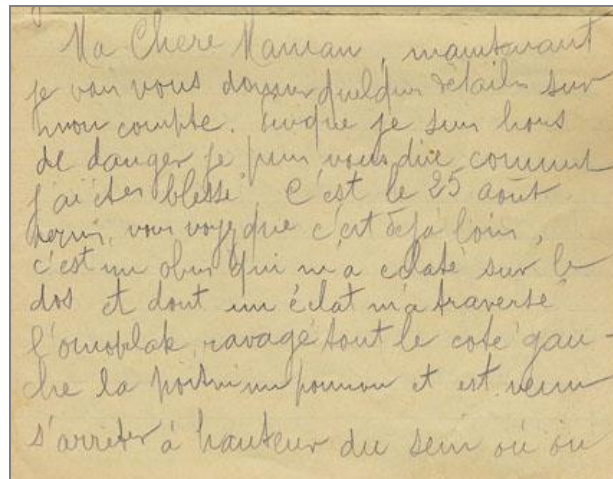 Ma Chere Maman, maintenant
je vais vous donner quelques détails sur
mon compte. que je suis hors
de danger je puis vous dire comment
j'ai étés blessé. C'est le 25 août
vous voyez que c'est déjà loin,
c'est un obus qui m'a eclaté sur le
dos et dont un éclat m'a traversé
l'omoplate, ravagé tout le coté gau-
che la poitrine un poumon et est venu
s'arrêter à hauteur du sein où on